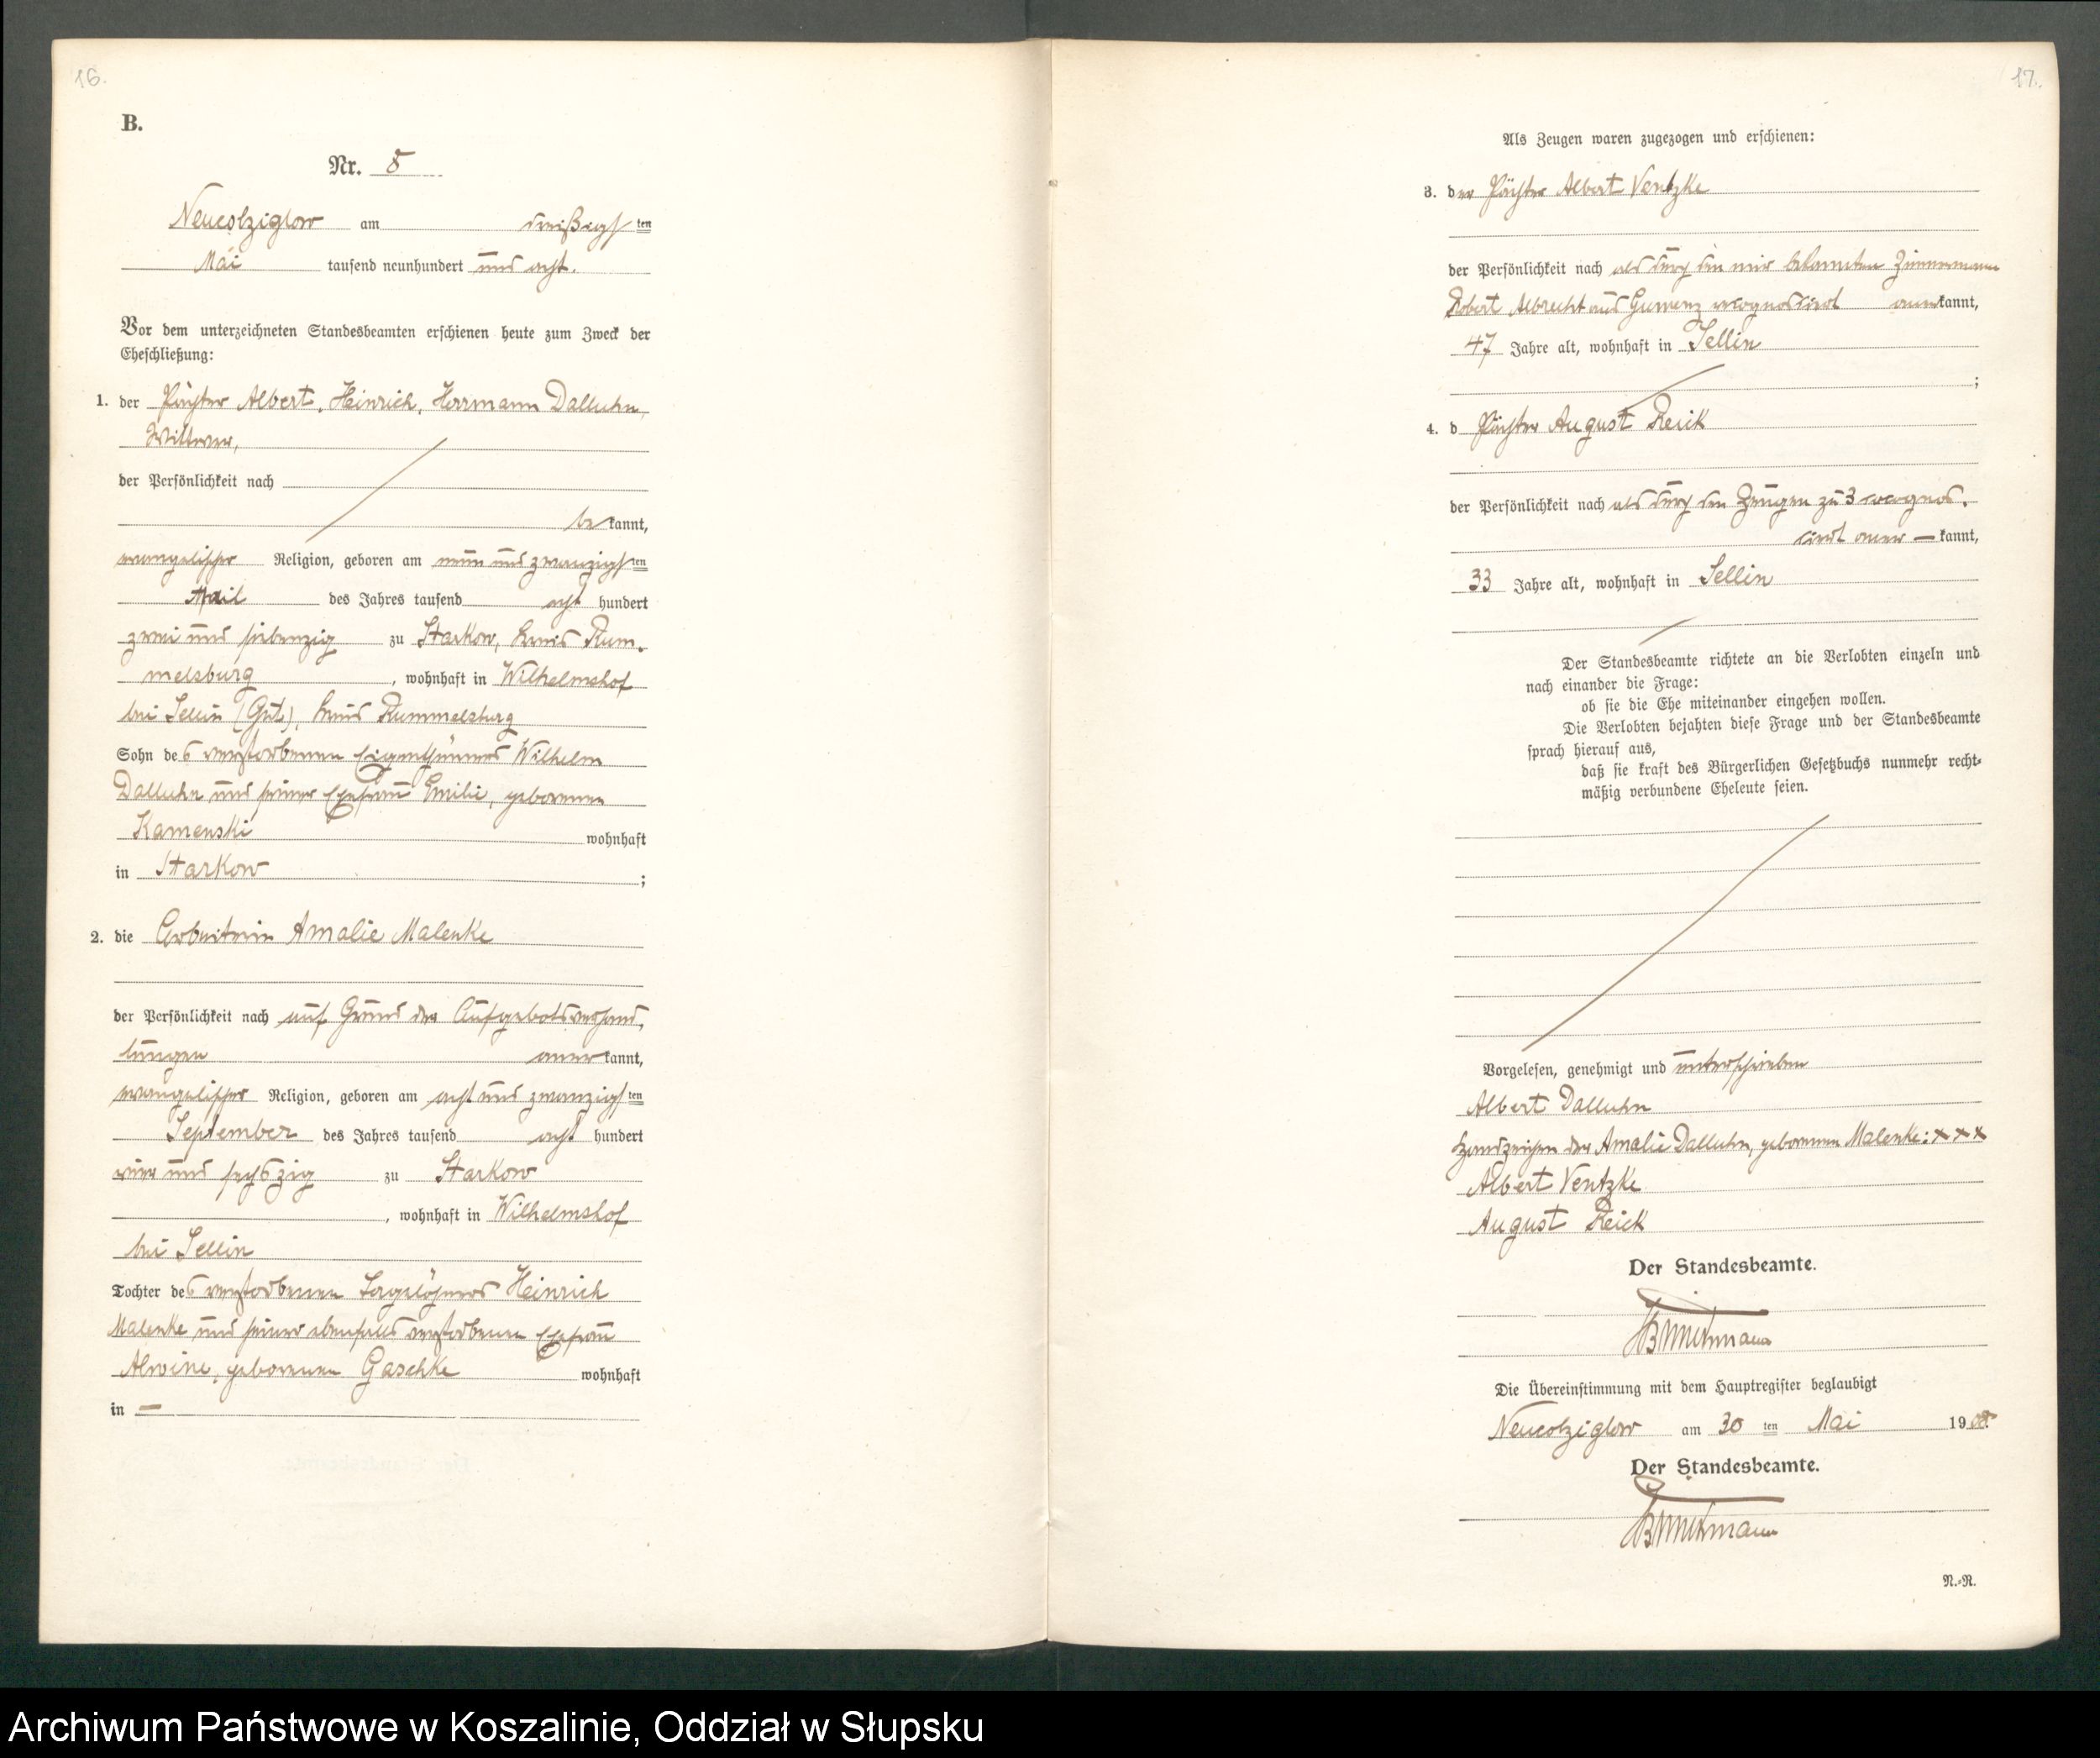 16.
B.
Nr. 8
Neucolziglow am dreißigsten
Mai tausend neunhundert und acht.
Vor dem unterzeichneten Standesbeamten erschienen heute zum Zweck der
Eheschließung:
1. der Pächter Albert, Heinrich, Herrmann Dalluhn,
Wittwer,
der Persönlichkeit nach
bekannt,
evangelischer Religion, geboren am neun und zwanzigsten
April des Jahres tausend acht hundert
zwei und siebenzig zu Starkow, Kreis Rum-
melsburg, wohnhaft in Wilhelmshof
bei Sellin (Gut), Kreis Rummelsburg
Sohn des verstorbenen Eigenthümers Wilhelm
Dalluhn und seiner Ehefrau Emilie, geborenen
Kamenski wohnhaft
in Starkow;
2. die Arbeiterin Amalie Malenke
der Persönlichkeit nach auf Grund der Aufgebotsverhand-
lungen anerkannt,
evangelischer Religion, geboren am acht und zwanzigsten
September des Jahres tausend acht hundert
vier und sechszig zu Starkow
, wohnhaft in Wilhelmshof
bei Sellin
Tochter des verstorbenen Tagelöhners Heinrich
Malenke und seiner ebenfalls verstorbenen Ehefrau
Alwine, geborenen Gaschke wohnhaft
in —
17.
Als Zeugen waren zugezogen und erschienen:
3. der Pächter Albert Ventzke
der Persönlichkeit nach als durch den mir bekannten Zimmermann
Robert Albrecht aus Gewenz recognoscirt anerkannt,
47 Jahre alt, wohnhaft in Sellin
;
4. d Pächter August Reick
der Persönlichkeit nach als durch den Zeugen zu 3 recognos-
cirt aner — kannt,
33 Jahre alt, wohnhaft in Sellin
Der Standesbeamte richtete an die Verlobten einzeln und
nach einander die Frage:
ob sie die Ehe miteinander eingehen wollen.
Die Verlobten bejahten diese Frage und der Standesbeamte
sprach hierauf aus,
daß sie kraft des Bürgerlichen Gesetzbuchs nunmehr recht-
mäßig verbundene Eheleute seien.
Vorgelesen, genehmigt und unterschrieben
Albert Dalluhn
Handzeichen der Amalie Dalluhn, geborenen Malenke: XXX
Albert Ventzke
August Reick
Der Standesbeamte.
Die Übereinstimmung mit dem Hauptregister beglaubigt
Neucolziglow am 30 ten Mai 1908.
Der Standesbeamte.
N.-R.
Archiwum Państwowe w Koszalinie, Oddział w Słupsku